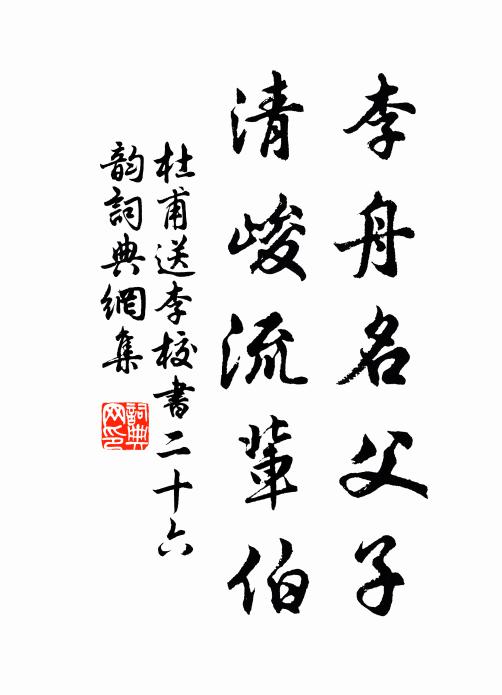 李舟名父子
清峻流輩伯
杜甫送李校書二十六
韵詞典網集
詞典
网印